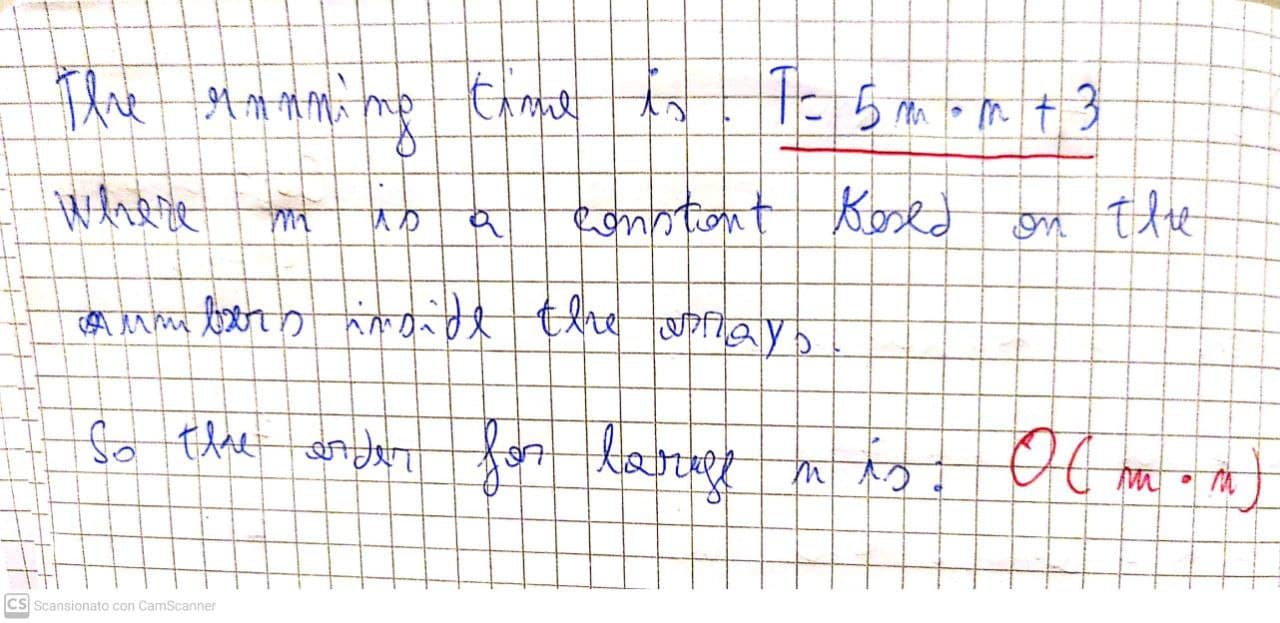 The running time is. T= 5m · n + 3
Where m is a constant based on the
numbers inside the arrays.
So the order for large n is: O(m · n)
CS Scansionato con CamScanner